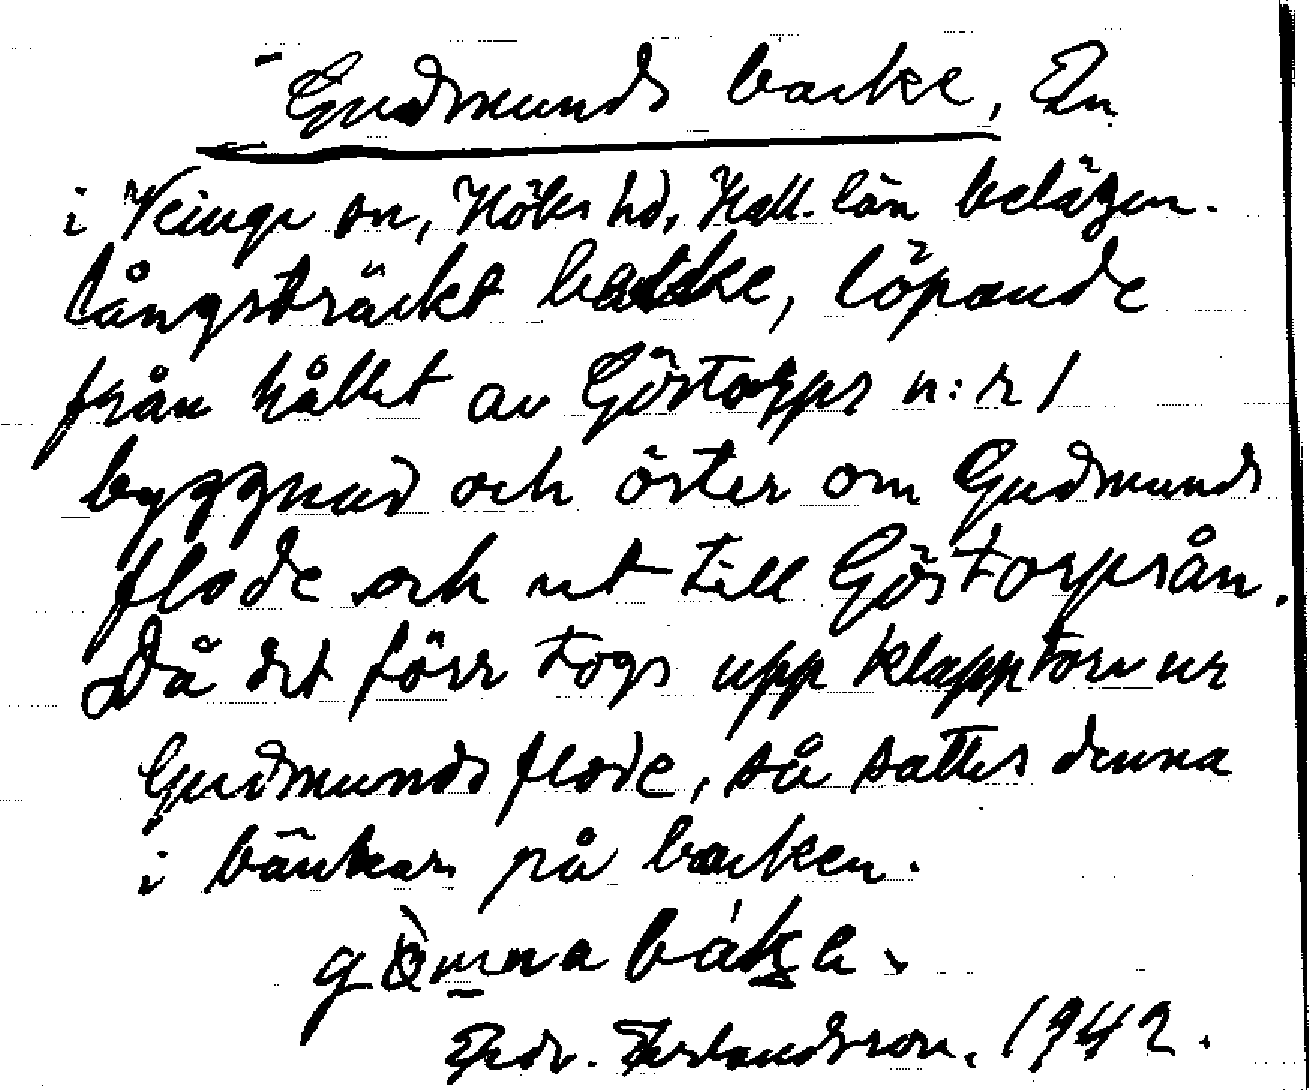 Gudmunds backe, En
i Veinge sn, Höks hd, Hall. län belägen
långsträckt backe, löpande
från hållet av Göstorps n:r 1
byggnad och öster om Gudmunds
flode och ut till Göstorpsån.
Då det förr togs upp klapptorv ur
Gudmunds flode, så sattes denna
i bänkar på backen.
Erlandsson. 1942.